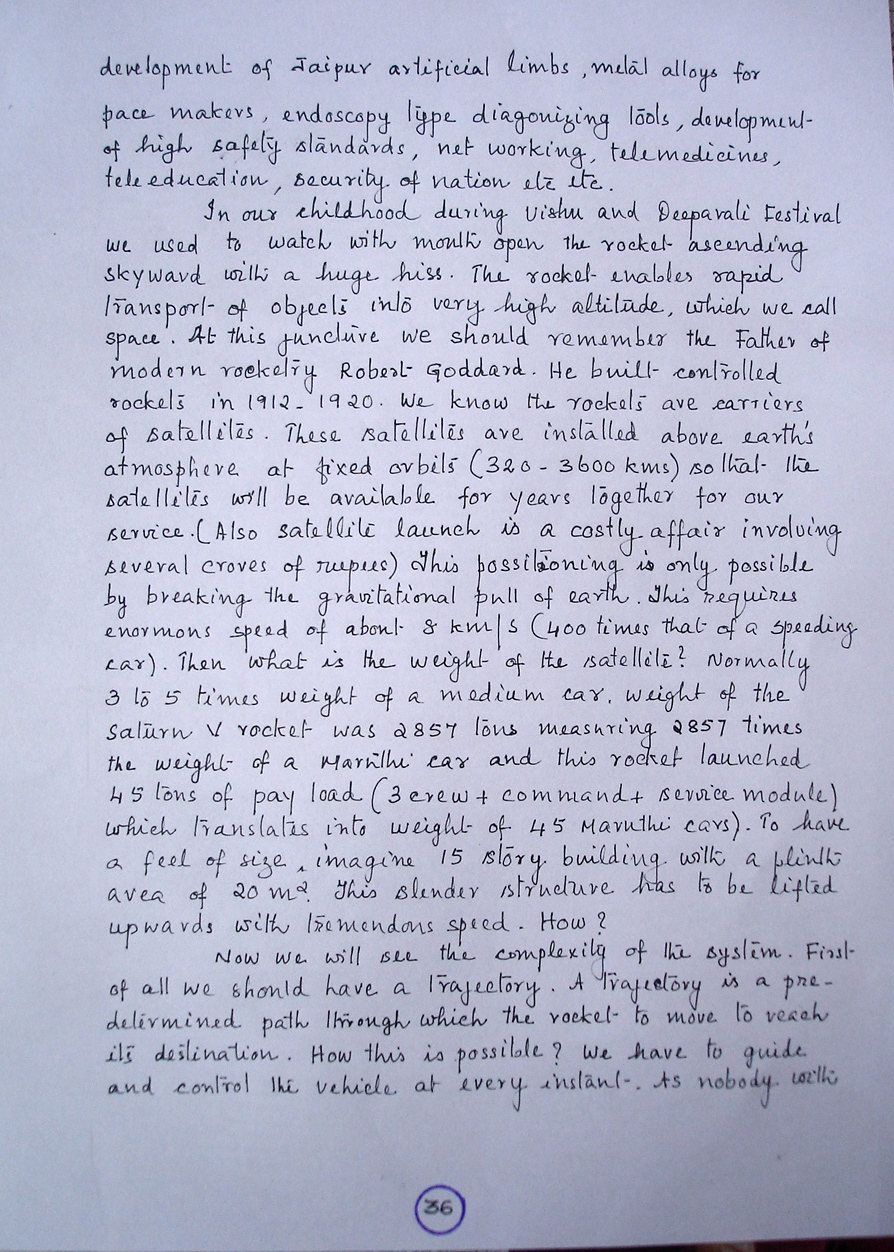 development of Jaipur artificial limbs, metal alloys for
pace makers, endoscopy type diagonizing tools, development
of high safety standards, net working, telemedicines,
tele education, security of nation etc etc.
In our childhood during Vishu and Deepavali Festival
we used to watch with mouth open the rocket ascending
skyward with a huge hiss. The rocket enables rapid
transport of objects into very high altitude, which we call
space. At this juncture we should remember the Father of
modern rocketry Robert Goddard. He built controlled
rockets in 1912-1920. We know the rockets are carriers
of satellites. These satellites are installed above earth's
atmosphere at fixed orbits (320 - 3600 kms) so that the
satellites will be available for years together for our
service. (Also satellite launch is a costly affair involving
several crores of rupees) This possitioning is only possible
by breaking the gravitational pull of earth. This requires
enormous speed of about 8 km/s (400 times that of a speeding
car). Then what is the weight of the satellite? Normally
3 to 5 times weight of a medium car. Weight of the
Saturn V rocket was 2857 tons measuring 2857 times
the weight of a Maruthi car and this rocket launched
45 tons of pay load (3 crew + command + service module)
which translates into weight of 45 Maruthi cars). To have
a feel of size, imagine 15 story building with a plinth
area of 20 m2. This slender structure has to be lifted
upwards with tremendous speed. How?
Now we will see the complexity of the system. First
of all we should have a trajectory. A Trajectory is a pre-
determined path through which the rocket to move to reach
its destination. How this is possible? We have to guide
and control the vehicle at every instant. As nobody with
36